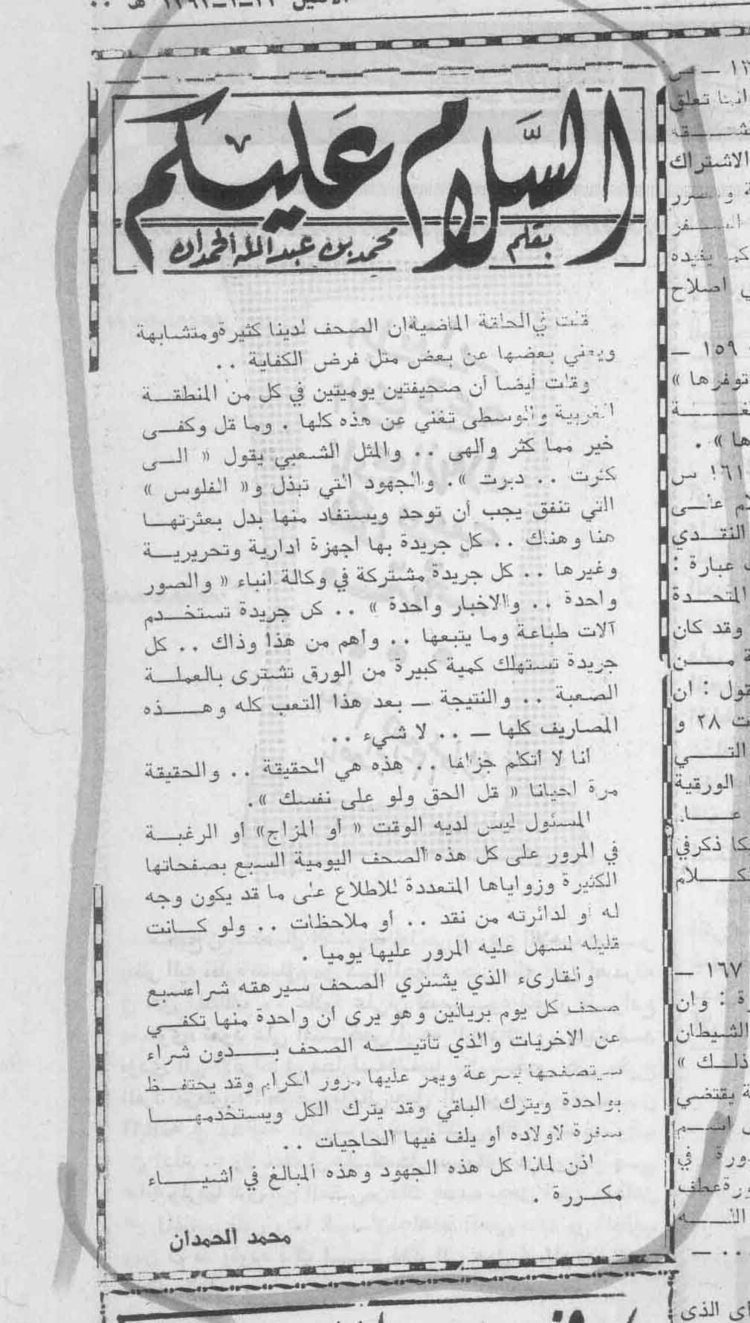 السلام عليكم
بقلم
محمد بن عبد الله الحمدان
قلت في الحلقة الماضية ان الصحف لدينا كثيرة ومتشابهة
ويغني بعضها عن بعض مثل فرض الكفاية . .
وقلت أيضا أن صحيفتين يوميتين في كل من المنطقة
الغربية والوسطى تغني عن هذه كلها . وما قل وكفى
خير مما كثر والهى . . والمثل الشعبي يقول « الى
كثرت . . دبرت » . والجهود التي تبذل و« الفلوس »
التي تنفق يجب أن توحد ويستفاد منها بدل بعثرتها
هنا وهناك . . كل جريدة بها اجهزة ادارية وتحريرية
وغيرها . . كل جريدة مشتركة في وكالة انباء « والصور
واحدة . . والاخبار واحدة » . . كل جريدة تستخدم
آلات طباعة وما يتبعها . . واهم من هذا وذاك . . كل
جريدة تستهلك كمية كبيرة من الورق تشترى بالعملة
الصعبة . . والنتيجة ــ بعد هذا التعب كله وهذه
المصاريف كلها ــ . . لا شيء . .
أنا لا أتكلم جزافا . . هذه هي الحقيقة . . والحقيقة
مرة احيانا « قل الحق ولو على نفسك » .
المسئول ليس لديه الوقت « أو المزاج» أو الرغبة
في المرور على كل هذه الصحف اليومية السبع بصفحاتها
الكثيرة وزواياها المتعددة للاطلاع على ما قد يكون وجه
له أو لدائرته من نقد . . أو ملاحظات . . ولو كانت
قليله لسهل عليه المرور عليها يوميا .
والقارىء الذي يشتري الصحف سيرهقه شراء سبع
صحف كل يوم بريالين وهو يرى أن واحدة منها تكفي
عن الاخريات والذي تأتيه الصحف بدون شراء
سيتصفحها بسرعة ويمر عليها مرور الكرام وقد يحتفظ
بواحدة ويترك الباقي وقد يترك الكل ويستخدمها
سفرة لاولاده أو يلف فيها الحاجيات . .
اذن لماذا كل هذه الجهود وهذه المبالغ في اشياء
مكررة .
محمد الحمدان